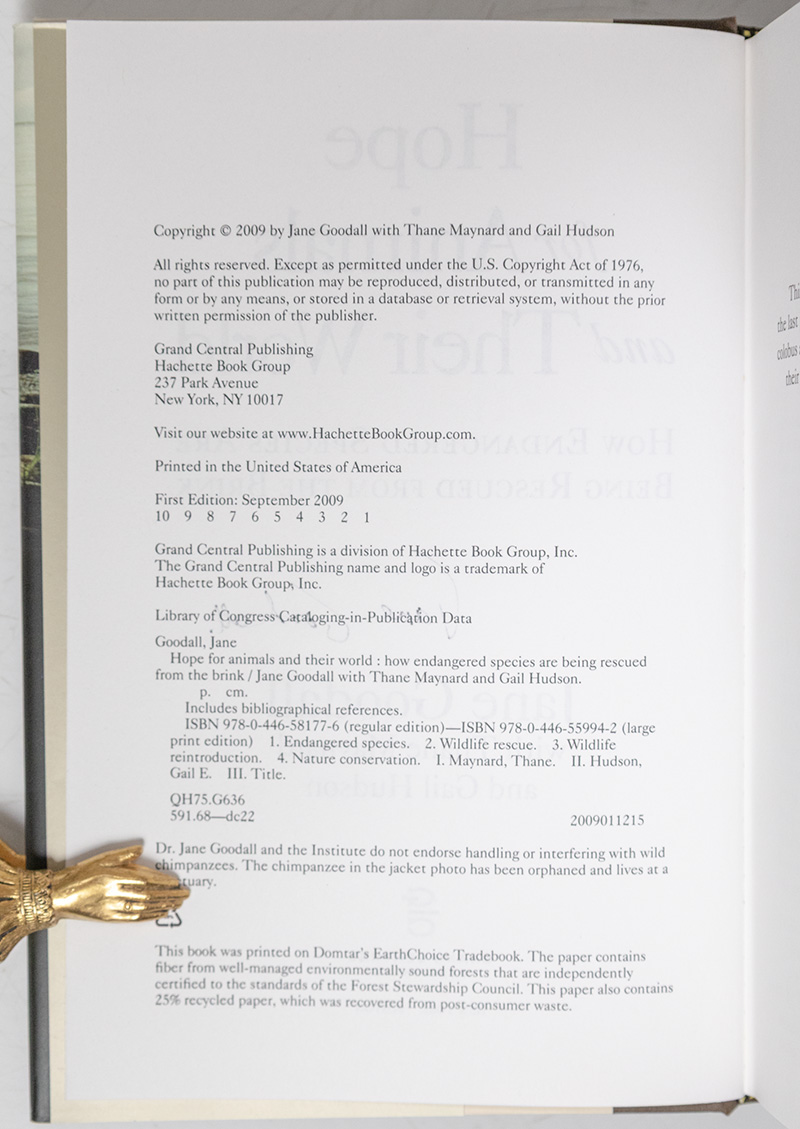 Copyright © 2009 by Jane Goodall with Thane Maynard and Gail Hudson
All rights reserved. Except as permitted under the U.S. Copyright Act of 1976,
no part of this publication may be reproduced, distributed, or transmitted in any
form or by any means, or stored in a database or retrieval system, without the prior
written permission of the publisher.
Grand Central Publishing
Hachette Book Group
237 Park Avenue
New York, NY 10017
Visit our website at www.HachetteBookGroup.com.
Printed in the United States of America
First Edition: September 2009
10 9 8 7 6 5 4 3 2 1
Grand Central Publishing is a division of Hachette Book Group, Inc.
The Grand Central Publishing name and logo is a trademark of
Hachette Book Group, Inc.
Library of Congress Cataloging-in-Publication Data
Goodall, Jane
Hope for animals and their world : how endangered species are being rescued
from the brink / Jane Goodall with Thane Maynard and Gail Hudson.
p. cm.
Includes bibliographical references.
ISBN 978-0-446-58177-6 (regular edition)—ISBN 978-0-446-55994-2 (large
print edition) 1. Endangered species. 2. Wildlife rescue. 3. Wildlife
reintroduction. 4. Nature conservation. I. Maynard, Thane. II. Hudson,
Gail E. III. Title.
QH75.G636
591.68—dc22 2009011215
Dr. Jane Goodall and the Institute do not endorse handling or interfering with wild
chimpanzees. The chimpanzee in the jacket photo has been orphaned and lives at a
tuary.
This book was printed on Domtar's EarthChoice Tradebook. The paper contains
fiber from well-managed environmentally sound forests that are independently
certified to the standards of the Forest Stewardship Council. This paper also contains
25% recycled paper, which was recovered from post-consumer waste.
the last
colobus
their